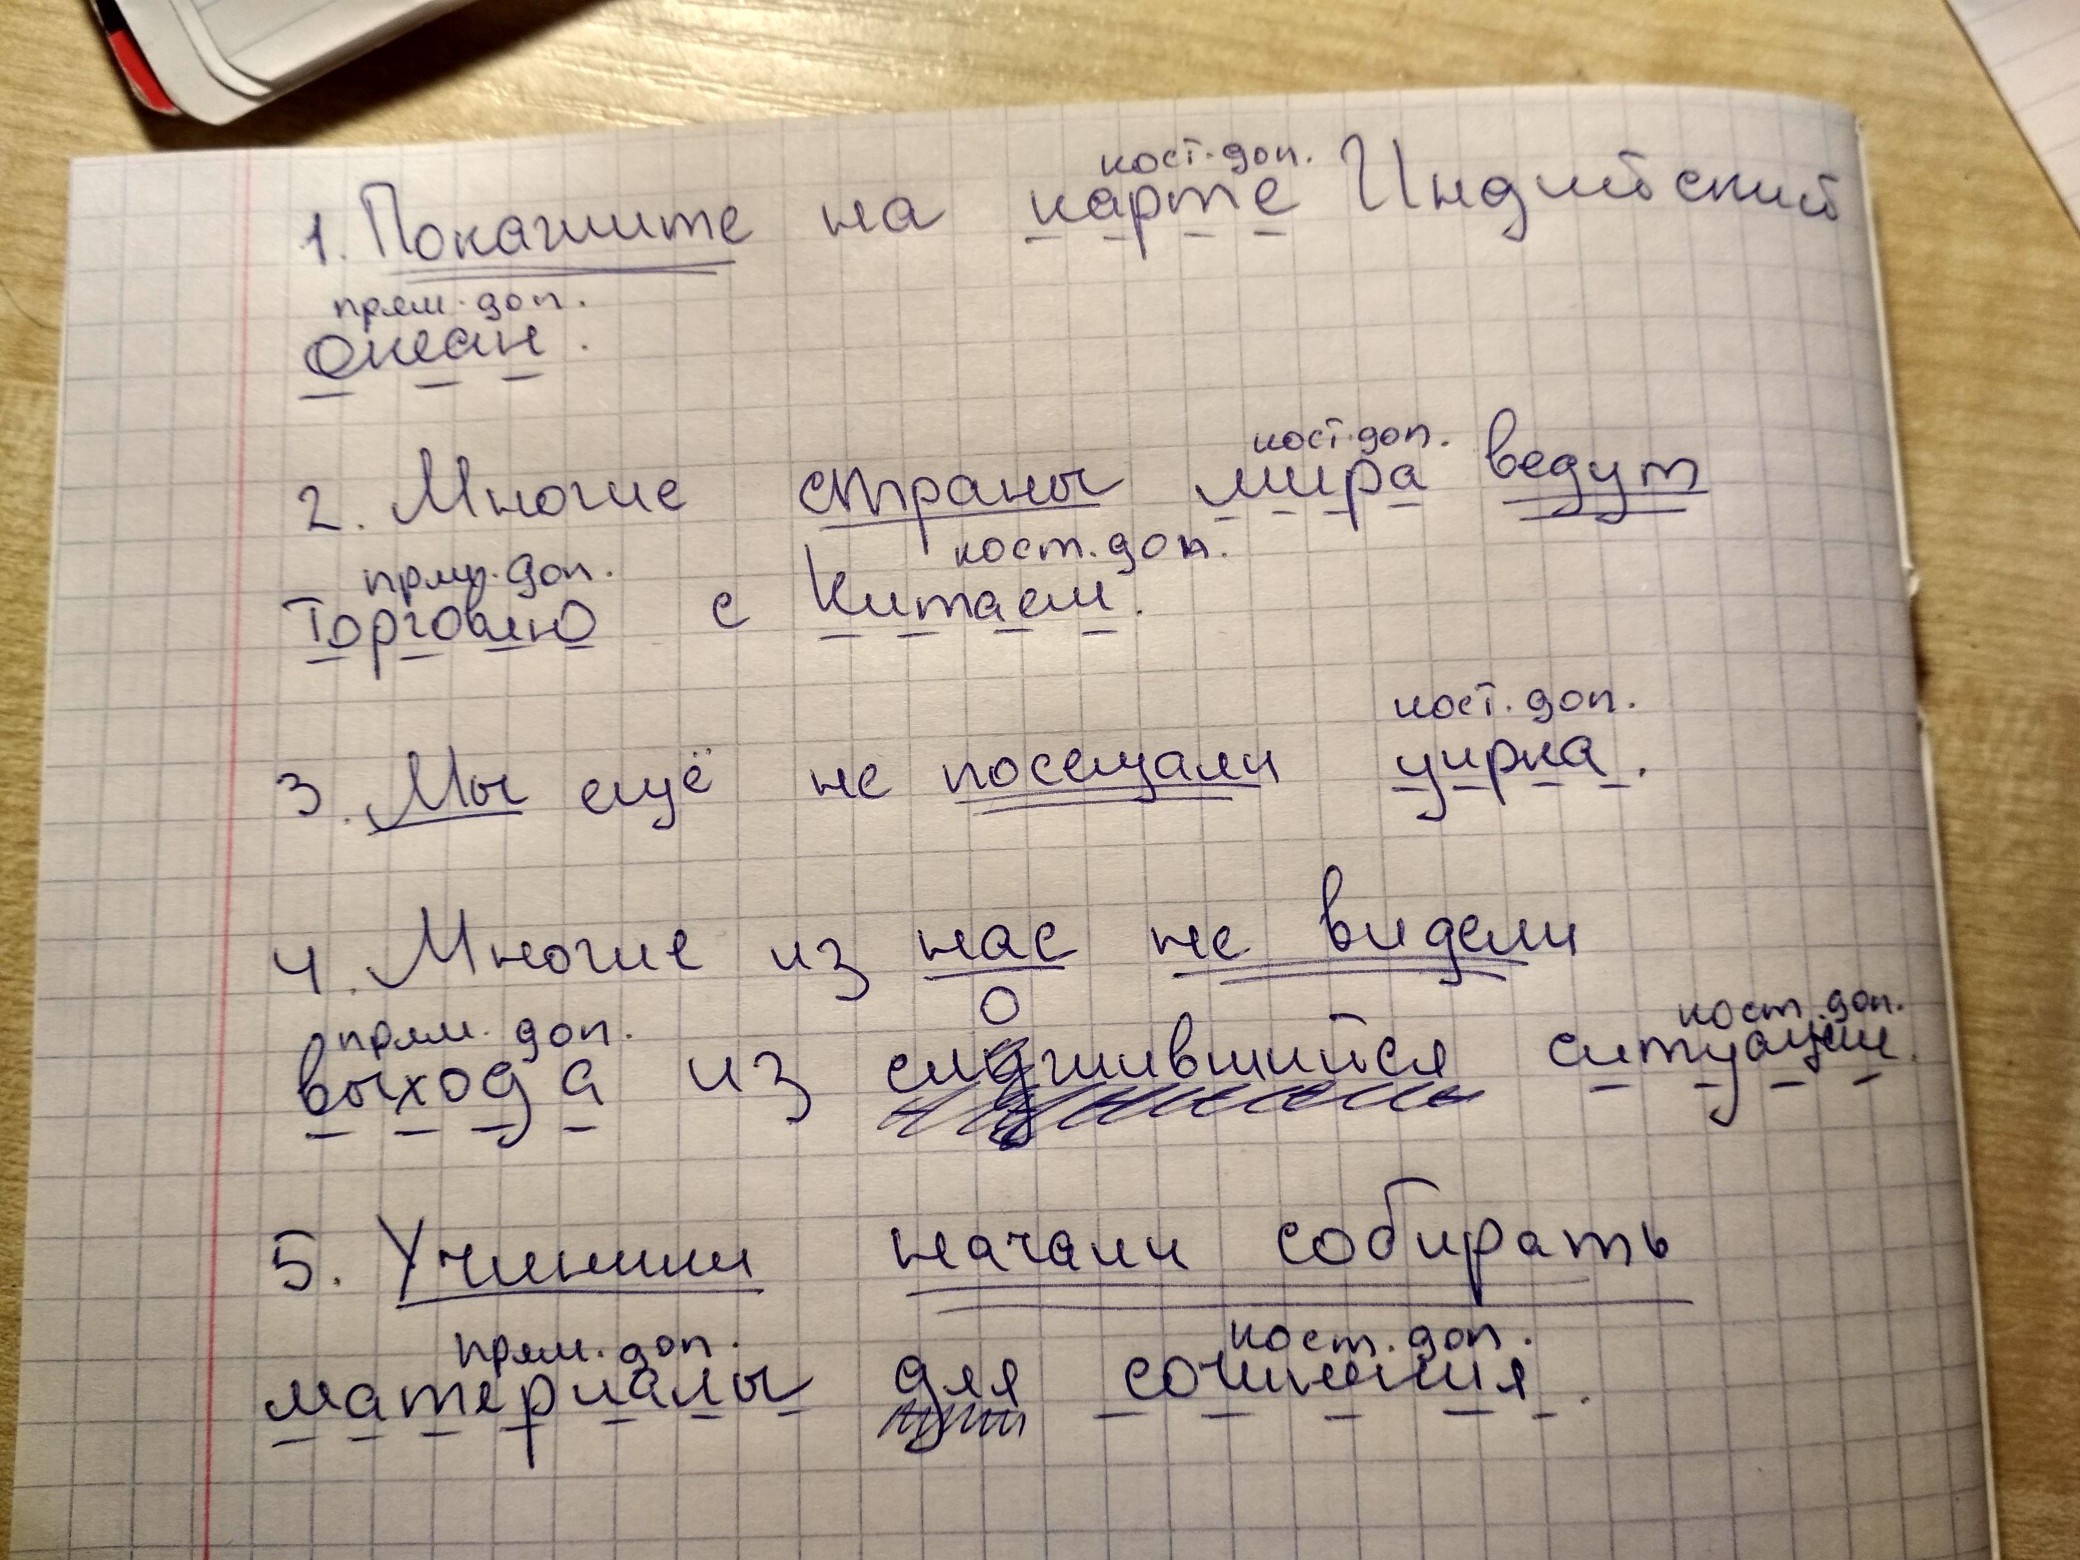 кост. доп.
1. Покажите на карте Индийский
прям. доп.
океан.
кост. доп.
2. Многие страны мира ведут
прям. доп. кост. доп.
торговлю с Китаем.
кост. доп.
3. Мы ещё не посещали цирка.
4. Многие из нас не видели
прям. доп. о кост. доп.
выхода из сложившийся ситуации.
5. Ученики начали собирать
прям. доп. кост. доп.
материалы для сочинения.